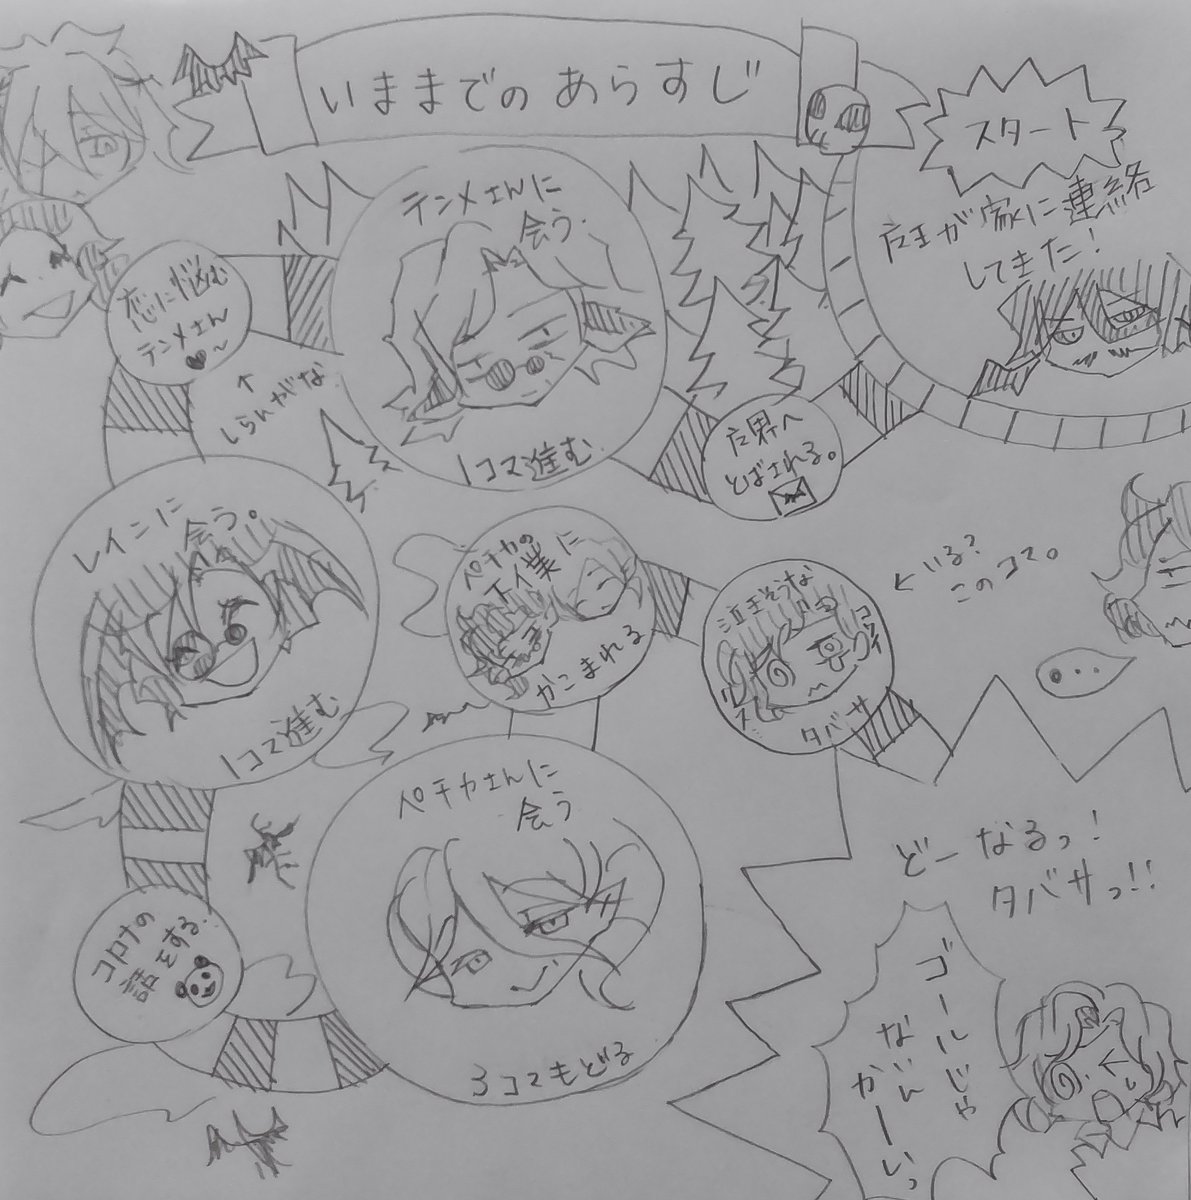 いままでのあらすじ
スタート
魔王が家に連絡
してきた!
魔界へ
とばされる。
テンメさんに
会う。
1コマ進む。
恋に悩む
テンメさん
♥〜
↑
しらんがな
レインに
会う。
1コマ進む
コロナの
話をする。
ペチカさんに
会う
3コマもどる
ペチカの
下僕に
かこまれる
泣きそうな
タバサ
←いる?
このコマ。
・・・
どーなるっ!
タバサっ!!
ゴールじゃ
ないん
かーいっ